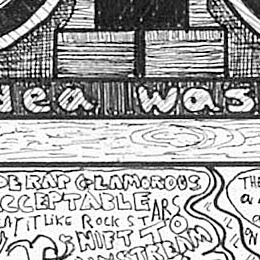 dea was
DE RAP GLAMOROUS
ACCEPTABLE
EARS
EAT IT LIKE ROCK ST
SHIFT TO
INSTREAM
THE
a
ON